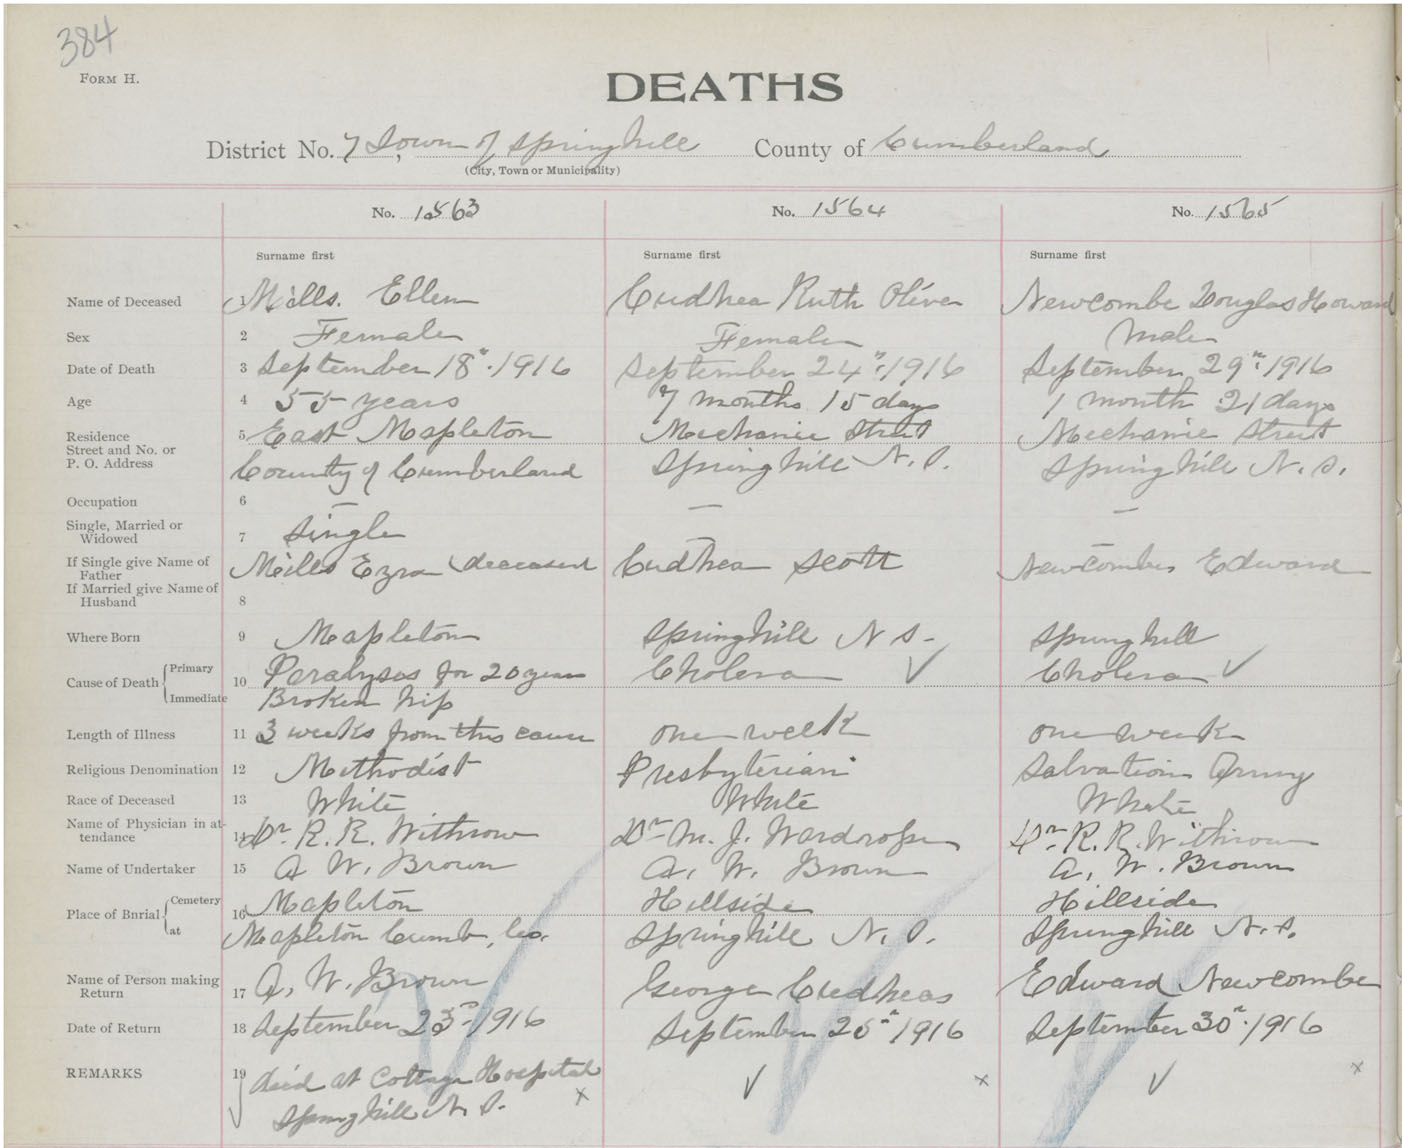 384
FORM H.
DEATHS
District No. 7, Town of Springhill County of Cumberland
(City, Town or Municipality)
No. 1563 No. 1564 No. 1565
Surname first Surname first Surname first
Name of Deceased 1 Mills. Ellen Cudhea Ruth Oliver Newcombe Douglas Howard
Sex 2 Female Female Male
Date of Death 3 September 18th 1916 September 24th 1916 September 29th 1916
Age 4 55 years 7 months 15 days 1 month 21 days
Residence 5 East Mapleton Mechanic Street Mechanic Street
Street and No. or
P. O. Address County of Cumberland Springhill N.S. Springhill N.S.
Occupation 6 — — —
Single, Married or
Widowed 7 Single — —
If Single give Name of
Father Mills Ezra (deceased Cudhea Scott Newcombe, Edward
If Married give Name of
Husband 8
Where Born 9 Mapleton Springhill N S. Springhill
Cause of Death { Primary 10 Paralyses for 20 years Cholera ✓ Cholera ✓
Immediate Broken hip
Length of Illness 11 3 weeks from this cause one week one week
Religious Denomination 12 Methodist Presbyterian Salvation Army
Race of Deceased 13 White White White
Name of Physician in at-
tendance 14 Dr. R. R. Withrow Dr M. J. Wardrope Dr. R. R. Withrow
Name of Undertaker 15 A W. Brown A. W. Brown A. W. Brown
Place of Burial { Cemetery 16 Mapleton Hillside Hillside
at Mapleton Cumb. Co. Springhill N.S. Springhill N.S.
Name of Person making
Return 17 A. W. Brown George Cudheas Edward Newcombe
Date of Return 18 September 23rd 1916 September 25th 1916 September 30th 1916
REMARKS 19 died at Cottage Hospital ✓ x ✓ x
Springhill N.S. x